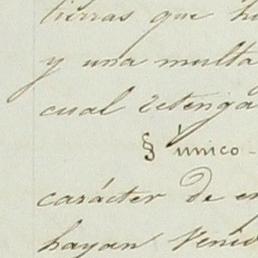 tierras que h
y una multa
cual retenga
§ único -
carácter de en
hayan Venid